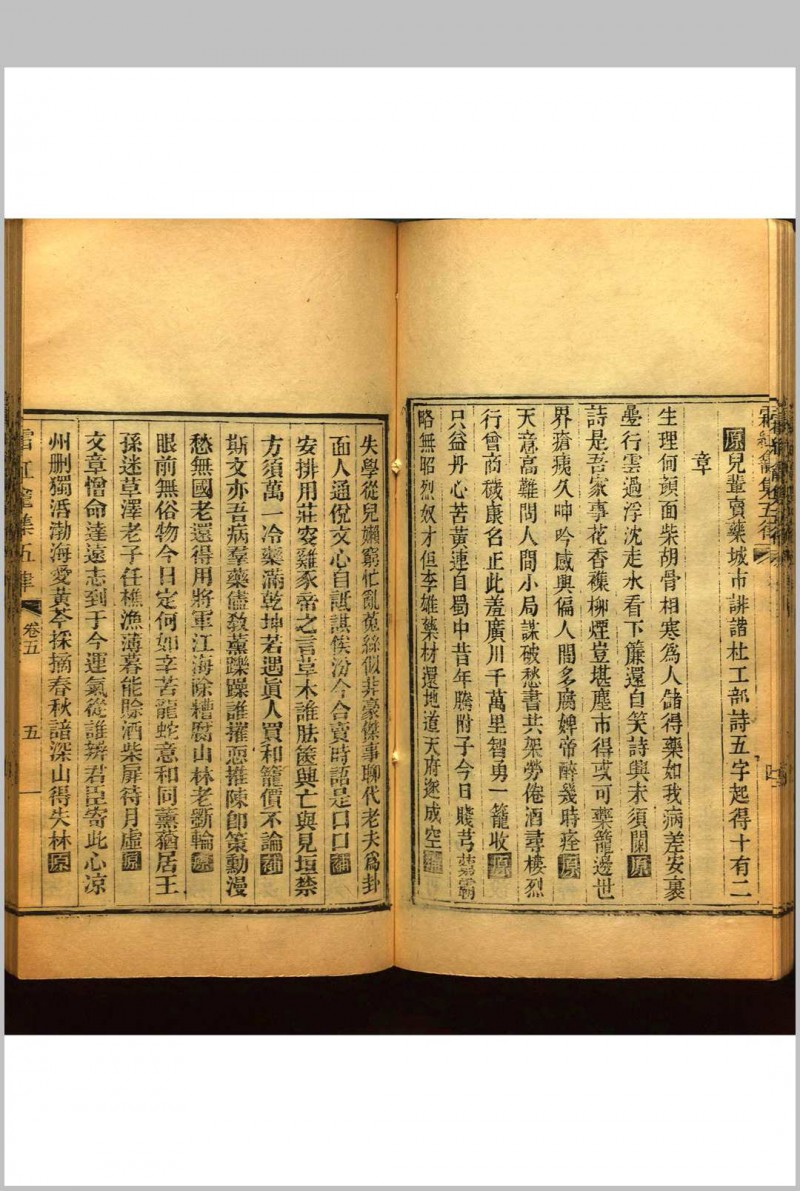 原兒輩賣藥城市誹諧杜工部詩五字起得十有二
章
生理何顏面柴胡骨相寒為人儲得藥如我病差安裹
疊行雲過浮沈走水看下簾還自笑詩興未須闌原
詩是吾家事花香襍柳煙豈堪塵市得或可藥籠邊世
界瘡痍久呻吟感興偏人閒多腐婢帝醉幾時痊原
天意高難問人間小局謀破愁書共架勞倦酒尋樓烈
行曾商穢康名正此羞廣川千萬里智勇一籠收原
只益丹心苦黃連自蜀中昔年騰附子今日賤芎藭霸
略無昭烈奴才但李雄藥材還地道天府逐成空
失學從兒嬾窮忙亂菟絲似非豪傑事聊代老夫為卦
面人通悅文心自詆諆佁汾今合賣時語是口口補
安排用莊安雞豕帝之言草木誰胠篋興亡與見垣禁
方須萬一冷藥滿乾坤若遇眞人買和籠價不論補
斯文亦吾病羣藥儘敎薰躁躁誰摧惡推陳卽策勳漫
愁無國老還得用將軍江海除糟粕山林老斲輪原
眼前無俗物今日定何如辛苦龍蛇意和同薰蕕居王
孫迷草澤老子任樵漁薄暮能賒酒柴屏待月虛原
文章憎命達遠志到于今運氣從誰辨君臣寄此心凉
州刪獨活渤海愛黃芩採摘春秋諳深山得失林原
卷五
五